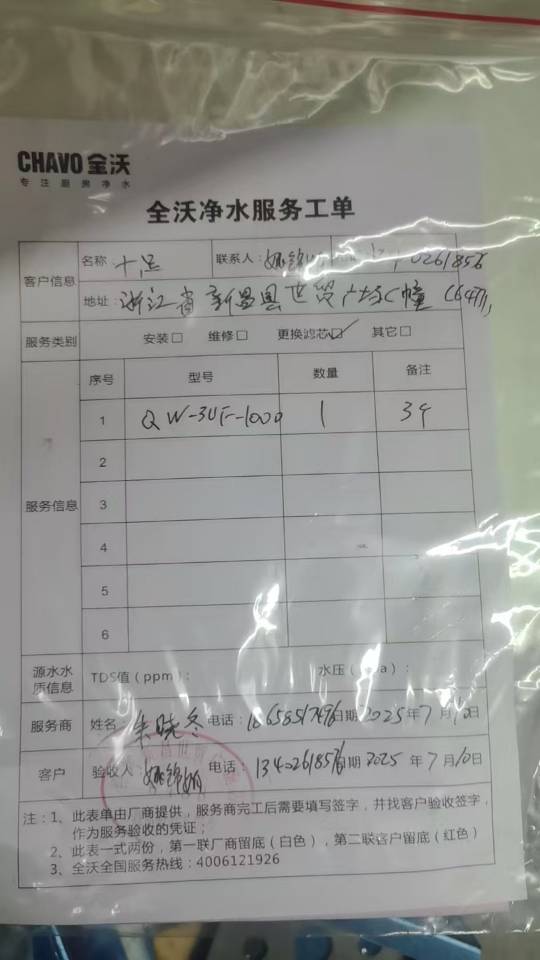 CHAVO 全沃
专注厨房净水
全沃净水服务工单
客户信息
名称：十足 联系人：
地址：浙江省新昌县世贸广场C幢
服务类别 安装□ 维修□ 更换滤芯☑ 其它□
服务信息
序号 型号 数量 备注
1 QW-3UF-1000 1
2
3
4
5
6
源水水质信息 TDS值（ppm）： 水压（ ）：
服务商 姓名：朱晓冬 电话： 日期 2025年7月10日
客户 验收人： 电话： 日期 2025年7月10日
注：1、此表单由厂商提供，服务商完工后需要填写签字，并找客户验收签字，
作为服务验收的凭证；
2、此表一式两份，第一联厂商留底（白色），第二联客户留底（红色）
3、全沃全国服务热线：4006121926